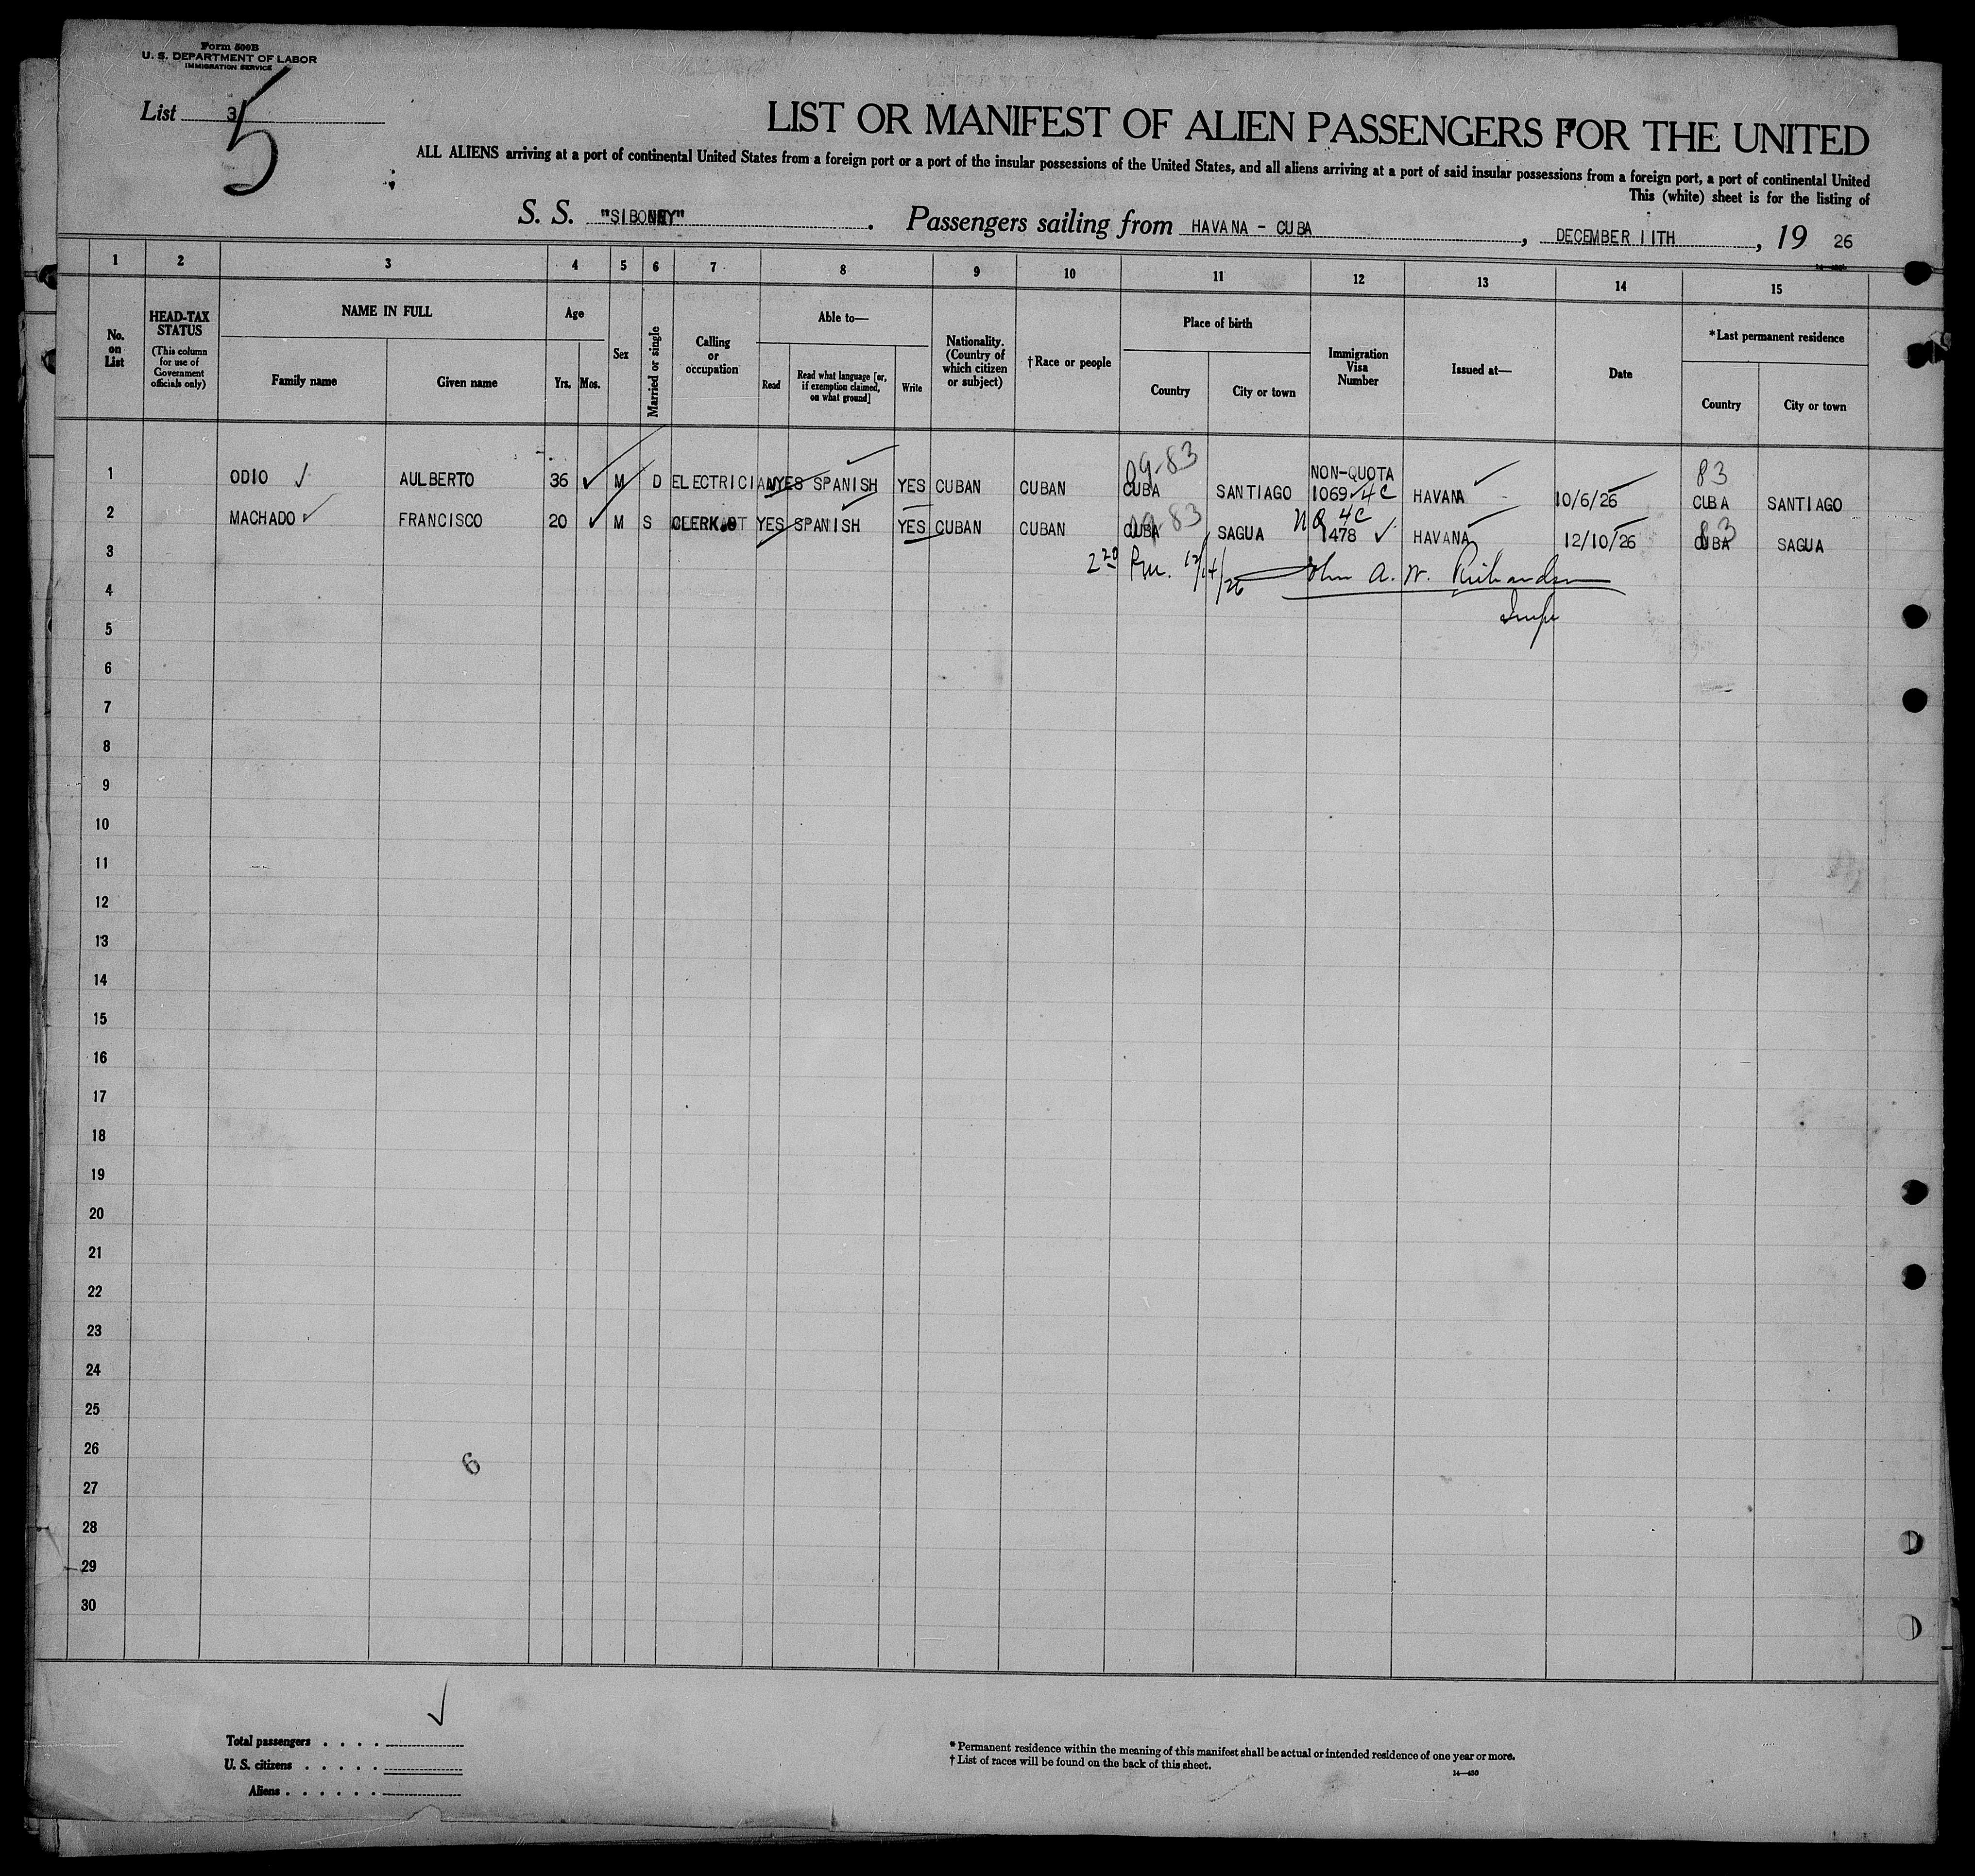 Form 500B
U. S. DEPARTMENT OF LABOR
IMMIGRATION SERVICE
List 3
5
LIST OR MANIFEST OF ALIEN PASSENGERS FOR THE UNITED
ALL ALIENS arriving at a port of continental United States from a foreign port or a port of the insular possessions of the United States, and all aliens arriving at a port of said insular possessions from a foreign port, a port of continental United
This (white) sheet is for the listing of
S. S. "SIBONEY". Passengers sailing from HAVANA - CUBA, DECEMBER 11TH, 19 26
1 2 3 4 5 6 7 8 9 10 11 12 13 14 15
No. on List
HEAD-TAX STATUS
(This column for use of Government officials only)
NAME IN FULL
Family name
Given name
Age
Yrs. Mos.
Sex
Married or single
Calling or occupation
Able to—
Read
Read what language [or, if exemption claimed, on what ground]
Write
Nationality. (Country of which citizen or subject)
†Race or people
Place of birth
Country
City or town
Immigration Visa Number
Issued at—
Date
*Last permanent residence
Country
City or town
09-83 NON-QUOTA 83
1 ODIO ✓ AULBERTO 36 ✓ M D ELECTRICIAN YES SPANISH YES CUBAN CUBAN CUBA SANTIAGO 1069 ✓ 4C HAVANA 10/6/26 CUBA SANTIAGO
09-83 NQ 4C 83
2 MACHADO ✓ FRANCISCO 20 ✓ M S CLERK YES SPANISH YES CUBAN CUBAN CUBA SAGUA 1478 ✓ HAVANA 12/10/26 CUBA SAGUA
3 2 20 P.M. 12/14/26 John A. W. Richardson
4
5 Insp
6
7
8
9
10
11
12
13
14
15
16
17
18
19
20
21
22
23
24
25
26
6
27
28
29
30
Total passengers . . . .
U. S. citizens . . . . .
Aliens . . . . . .
* Permanent residence within the meaning of this manifest shall be actual or intended residence of one year or more.
† List of races will be found on the back of this sheet.
14—430